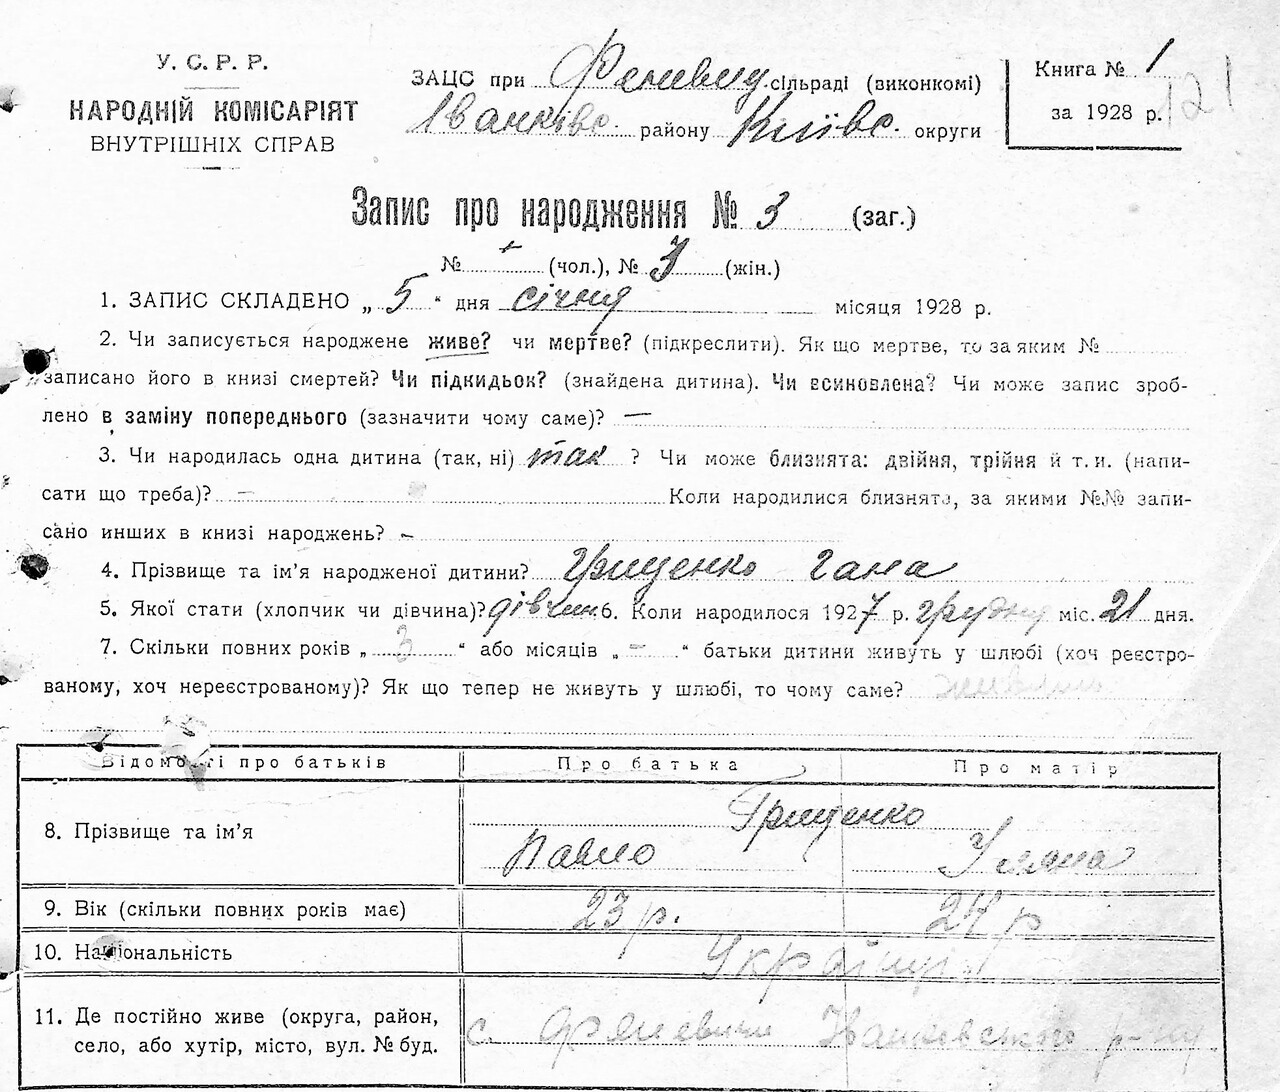 У. С. Р. Р.
НАРОДНІЙ КОМІСАРІЯТ
ВНУТРІШНІХ СПРАВ
ЗАЦС при сільраді (виконкомі)
Іванківс. району Київс. округи
Книга № 1
за 1928 р. 121
Запис про народження № 3 (заг.)
№ (чол.), № 3 (жін.)
1. ЗАПИС СКЛАДЕНО „ 5 “ дня січня місяця 1928 р.
2. Чи записується народжене живе? чи мертве? (підкреслити). Як що мертве, то за яким №
записано його в книзі смертей? Чи підкидьок? (знайдена дитина). Чи всиновлена? Чи може запис зроб-
лено в заміну попереднього (зазначити чому саме)? —
3. Чи народилась одна дитина (так, ні) так ? Чи може близнята: двійня, трійня й т. и. (напи-
сати що треба)? – Коли народилися близнята, за якими №№ запи-
сано инших в книзі народжень? –
4. Прізвище та ім’я народженої дитини? Грищенко Гана
5. Якої стати (хлопчик чи дівчина)? дівчин 6. Коли народилося 1927 р. грудня міс. 21 дня.
7. Скільки повних років „ 3 “ або місяців „ – “ батьки дитини живуть у шлюбі (хоч реєстро-
ваному, хоч нереєстрованому)? Як що тепер не живуть у шлюбі, то чому саме?
Відомості про батьків Про батька Про матір
8. Прізвище та ім’я Грищенко
Павло Уляна
9. Вік (скільки повних років має) 23 р. 24 р
10. Національність Українці
11. Де постійно живе (округа, район,
село, або хутір, місто, вул. № буд.
с. Френевичи Іванковського р-ну